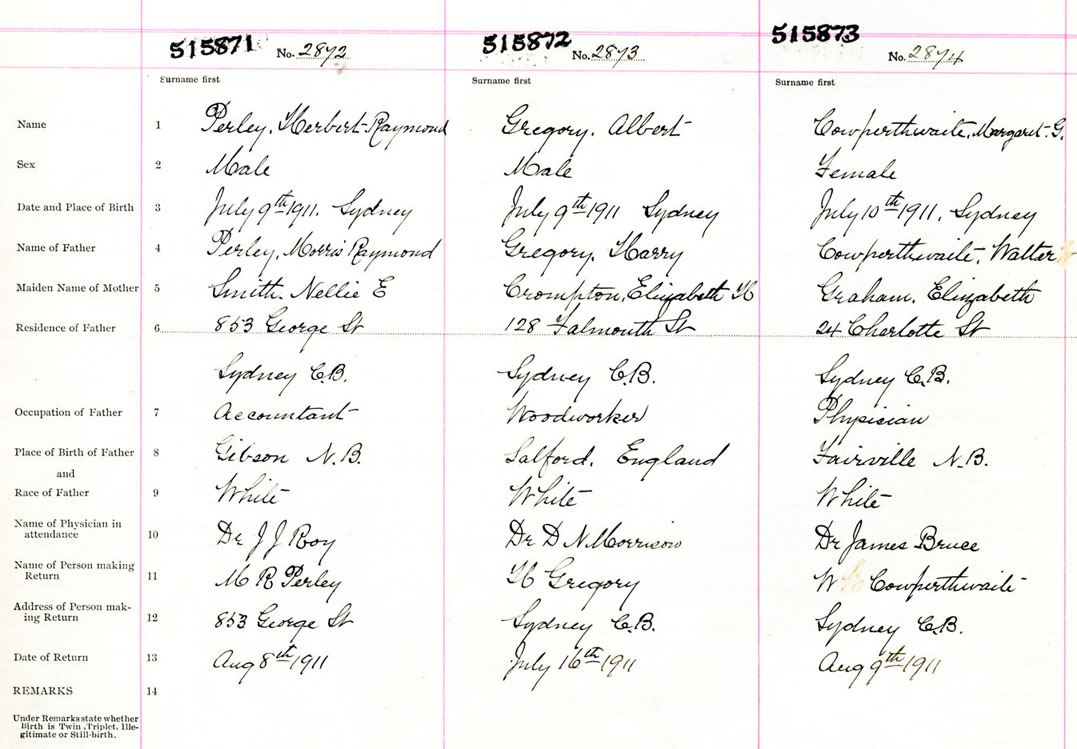 515871 No. 2872 515872 No. 2873 515873 No. 2874
Surname first Surname first Surname first
Name 1 Perley, Herbert Raymond Gregory, Albert Cowperthwaite, Margaret G.
Sex 2 Male Male Female
Date and Place of Birth 3 July 9th 1911. Sydney July 9th 1911 Sydney July 10th 1911. Sydney
Name of Father 4 Perley, Morris Raymond Gregory, Harry Cowperthwaite, Walter
Maiden Name of Mother 5 Smith, Nellie E Crompton, Elizabeth H Graham, Elizabeth
Residence of Father 6 853 George St 128 Falmouth St 24 Charlotte St
Sydney C.B. Sydney C.B. Sydney C.B.
Occupation of Father 7 Accountant Woodworker Physician
Place of Birth of Father 8 Gibson N.B. Salford, England Fairville N.B.
and
Race of Father 9 White White White
Name of Physician in
attendance 10 Dr J J Roy Dr D N Morrison Dr James Bruce
Name of Person making
Return 11 M R Perley H Gregory W Cowperthwaite
Address of Person mak-
ing Return 12 853 George St Sydney C.B. Sydney C.B.
Date of Return 13 Aug 8th 1911 July 16th 1911 Aug 9th 1911
REMARKS 14
Under Remarks state whether
Birth is Twin, Triplet, Ille-
gitimate or Still-birth.